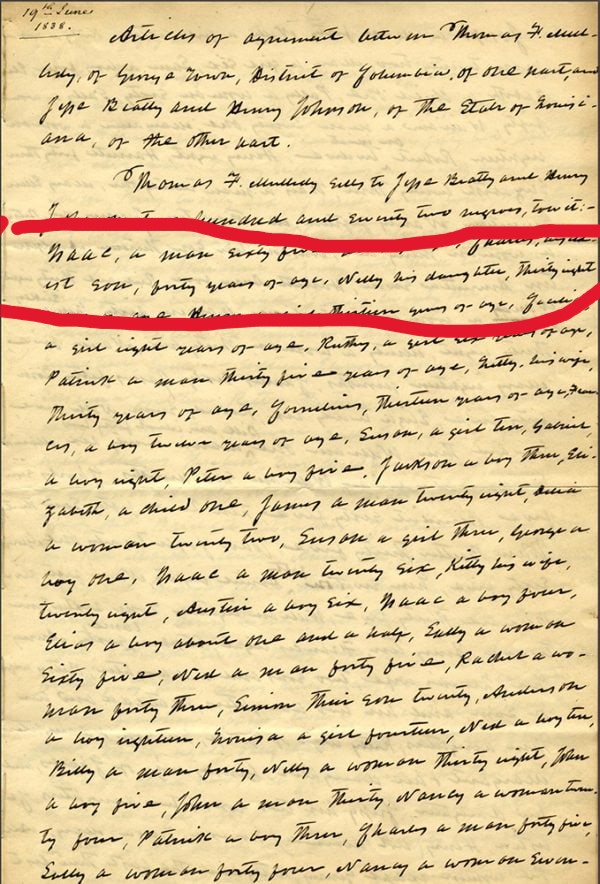 19th June
1838.
Articles of agreement between Thomas F. Mull-
edy, of George Town, District of Columbia, of one part, and
Jesse Beatty and Henry Johnson, of the State of Louisi-
ana, of the other part.
Thomas F. Mulledy sells to Jesse Beatty and Henry
hundred and seventy two negroes, to wit:-
Isaac, a man sixty five Charles,
est son, forty years of age, Nelly his daughter, thirty eight
thirteen years of age,
a girl eight years of age, Ruthy, a girl six years of age,
Patrick a man thirty five years of age, Letty, his wife,
thirty years of age, Cornelius, thirteen years of age, Fran-
cis, a boy twelve years of age, Susan, a girl ten, Gabriel
a boy eight, Peter a boy five, Jackson a boy three, Eli-
zabeth, a child one, James a man twenty eight, Delia
a woman twenty two, Susan a girl three, George a
boy one, Isaac a man twenty six, Kitty his wife,
twenty eight, Austin a boy six, Isaac a boy four,
Elias a boy about one and a half, Sally a woman
sixty five, Ned a man forty five, Rachel a wo-
man forty three, Simon their son twenty, Anderson
a boy eighteen, Louisa a girl fourteen, Ned a boy ten,
Billy a man forty, Nelly a woman thirty eight, John
a boy five, John a man thirty, Nancy a woman twen-
ty four, Patrick a boy three, Charles a man forty five,
Sally a woman forty four, Nancy a woman seven-